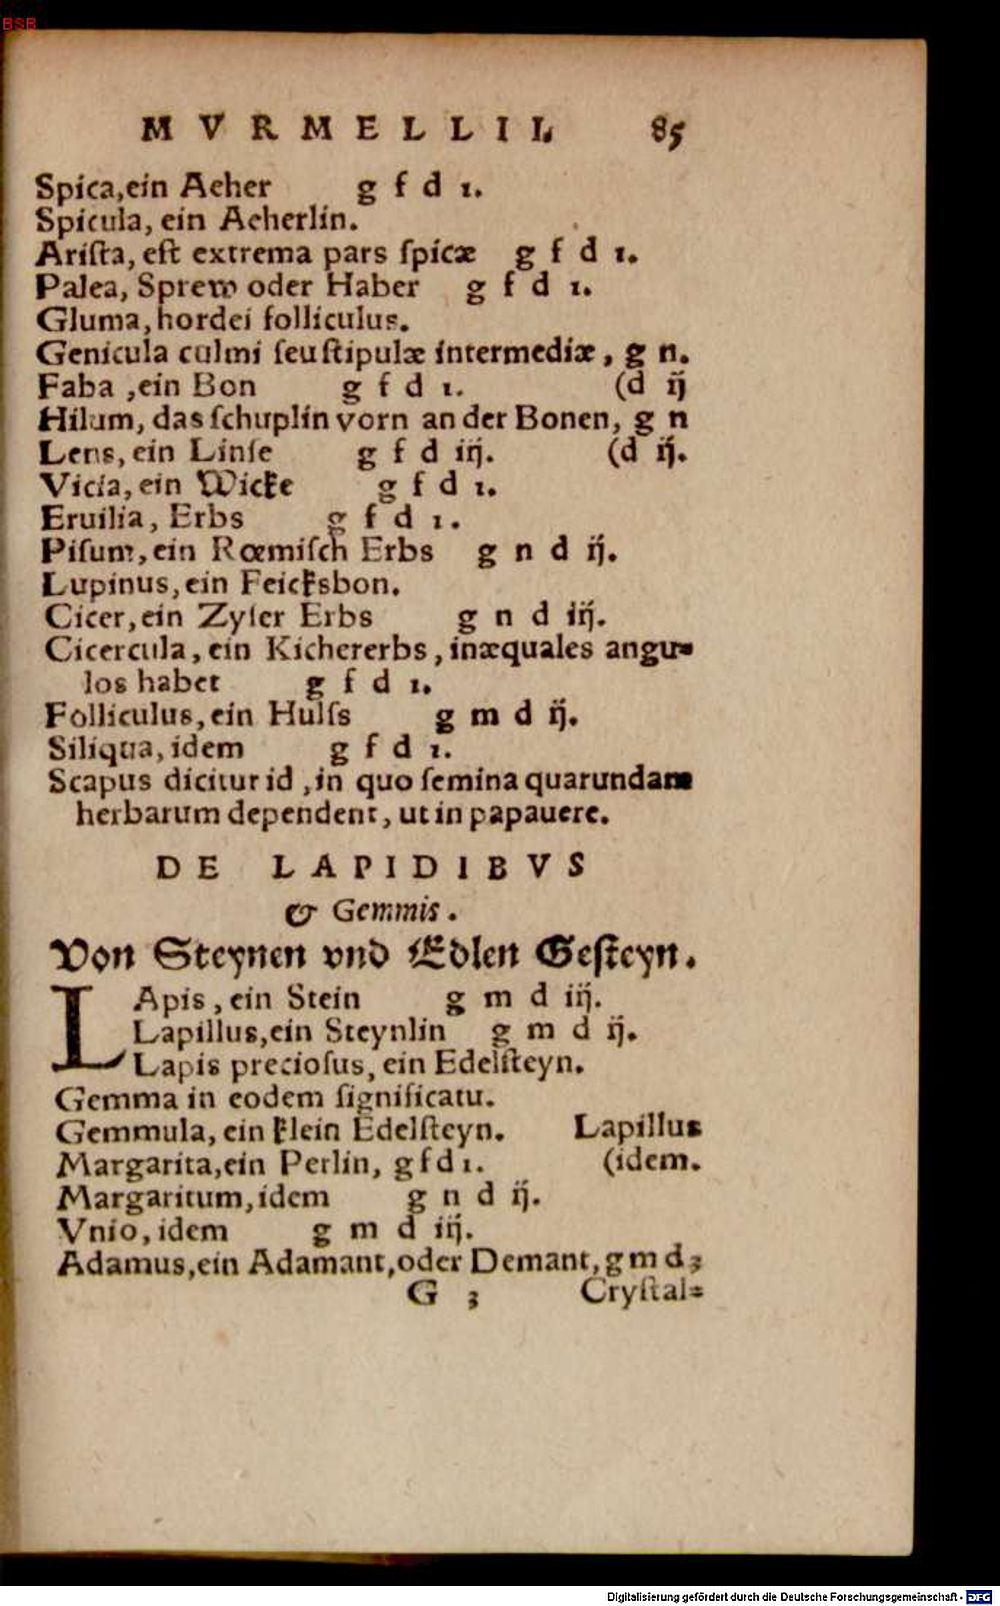 BSB
MVRMELLII. 85
Spica, ein Aeher g f d ı.
Spicula, ein Aeherlin.
Ariſta, eſt extrema pars ſpicæ g f d ı.
Palea, Sprew oder Haber g f d ı.
Gluma, hordei folliculus.
Genicula culmi ſeu ſtipulæ intermediæ, g n.
Faba, ein Bon g f d ı. (d ij
Hilum, das ſchuplin vorn an der Bonen, g n
Lens, ein Linſe g f d iij. (d ij.
Vicia, ein Wicke g f d ı.
Eruilia, Erbs g f d ı.
Piſum, ein Rœmiſch Erbs g n d ij.
Lupinus, ein Feicksbon.
Cicer, ein Zyſer Erbs g n d iij.
Cicercula, ein Kichererbs, inæquales angu-
los habet g f d ı.
Folliculus, ein Hulſs g m d ij.
Siliqua, idem g f d ı.
Scapus dicitur id, in quo ſemina quarundam
herbarum dependent, ut in papauere.
DE LAPIDIBVS
& Gemmis.
Von Steynen vnd Edlen Geſteyn.
LApis, ein Stein g m d iij.
Lapillus, ein Steynlin g m d ij.
Lapis precioſus, ein Edelſteyn.
Gemma in eodem ſignificatu.
Gemmula, ein klein Edelſteyn. Lapillus
Margarita, ein Perlin, g f d ı. (idem.
Margaritum, idem g n d ij.
Vnio, idem g m d iij.
Adamus, ein Adamant, oder Demant, g m d 3
G 3 Cryſtal=
Digitalisierung gefördert durch die Deutsche Forschungsgemeinschaft - DFG